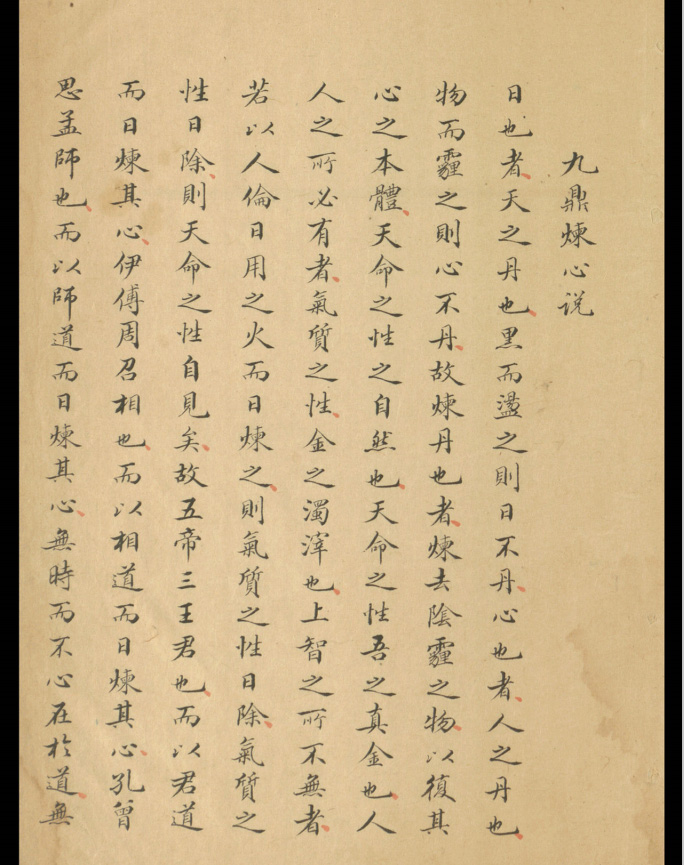 九鼎煉心説
日也者天之丹也黑而盪之則日不丹心也者人之丹也
物而霾之則心不丹故煉丹也者煉去陰霾之物以復其
心之本體天命之性之自然也天命之性吾之真金也人
人之所必有者氣質之性金之濁滓也上智之所不無者
若以人倫日用之火而日煉之則氣質之性日除氣質之
性日除則天命之性自見矣故五帝三王君也而以君道
而日煉其心伊傅周召相也而以相道而日煉其心孔曾
思孟師也而以師道而日煉其心無時而不心在於道無